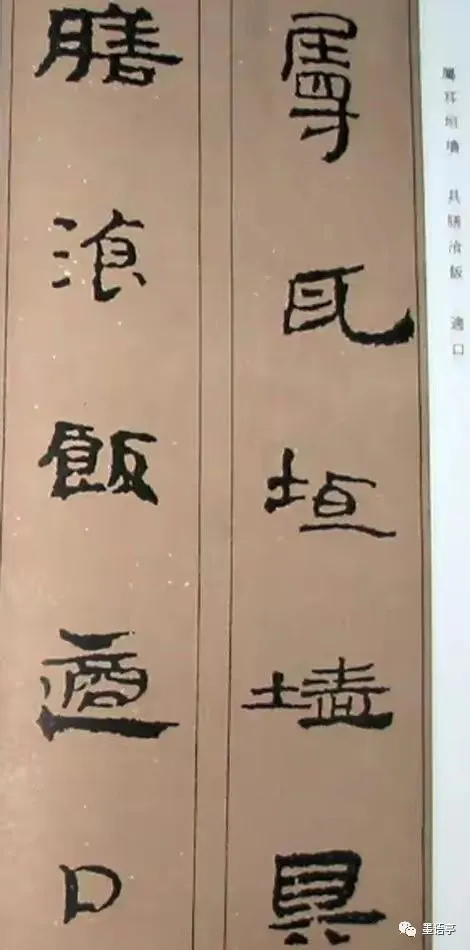 屬耳垣墻 具膳湌飯 適口
屬耳垣墻具
膳湌飯適口
墨悟亭